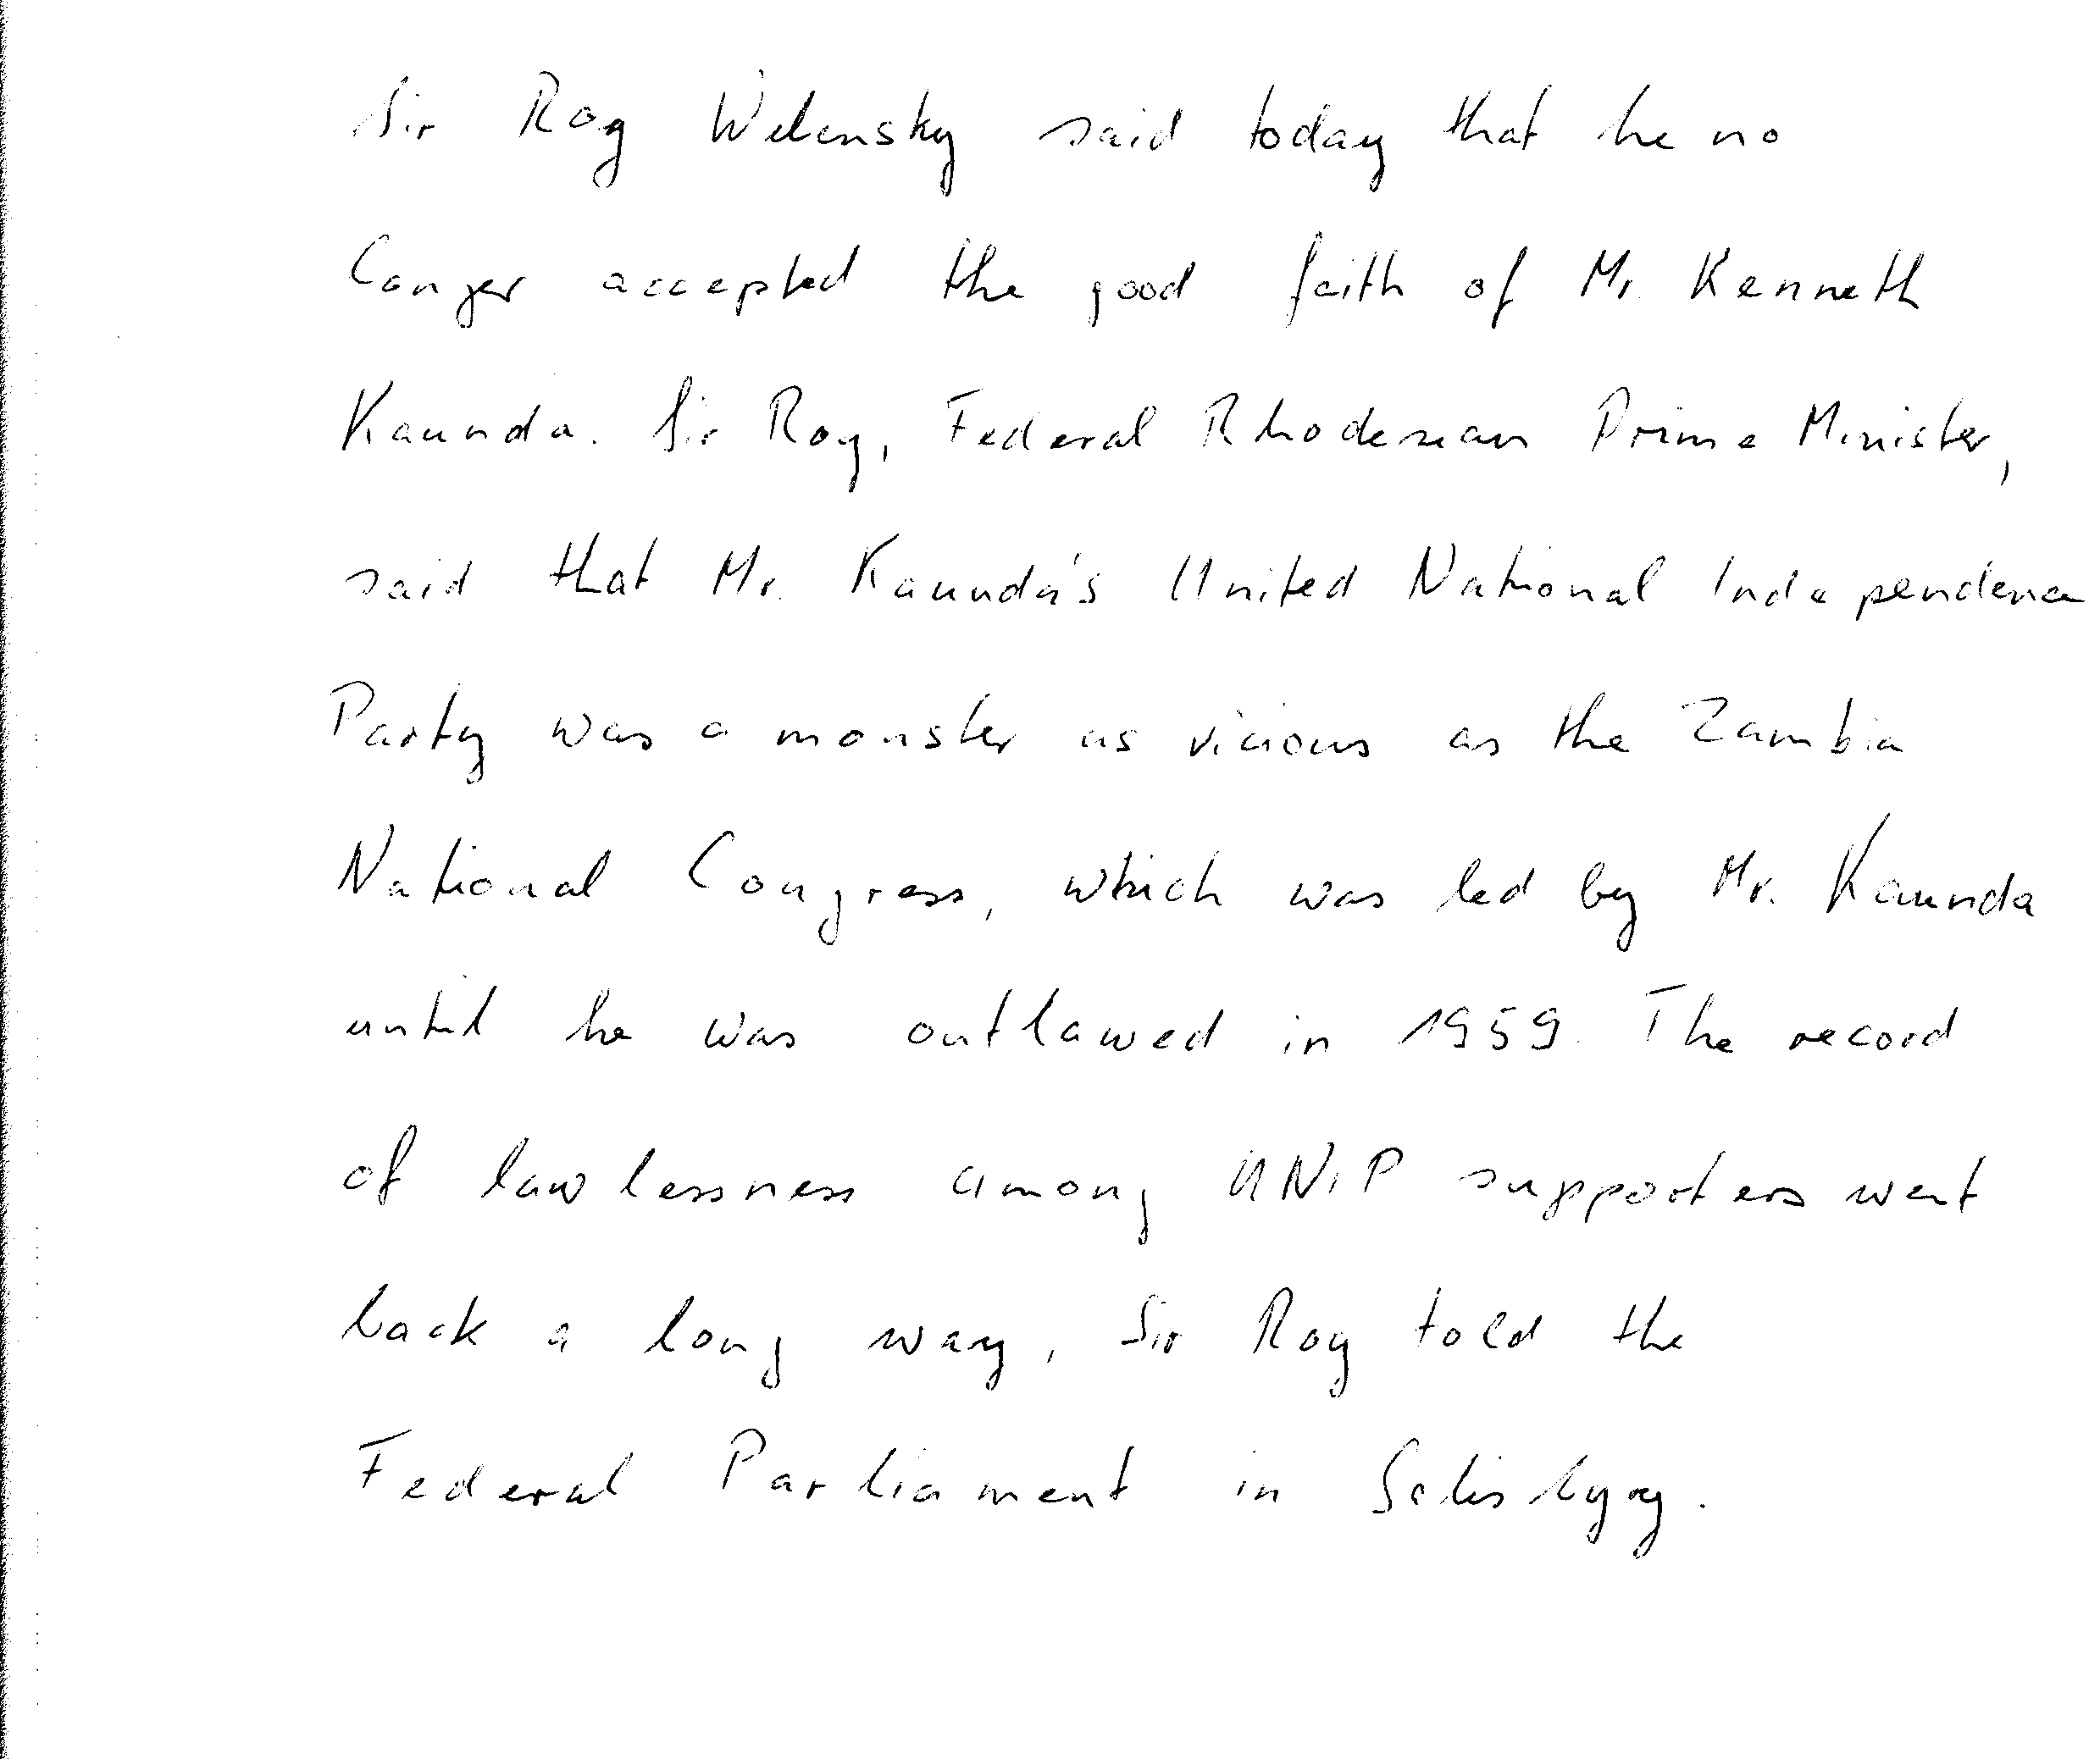 Sir Roy Welensky said today that he no
longer accepted the good faith of Mr. Kenneth
Kaunda. Sir Roy, Federal Rhodesian Prime Minister,
said that Mr. Kaunda's United National Independence
Party was a monster as vicious as the Zambia
National Congress, which was led by Mr. Kaunda
until he was outlawed in 1959. The record
of lawlessness among UNIP supporters went
back a long way, Sir Roy told the
Federal Parliament in